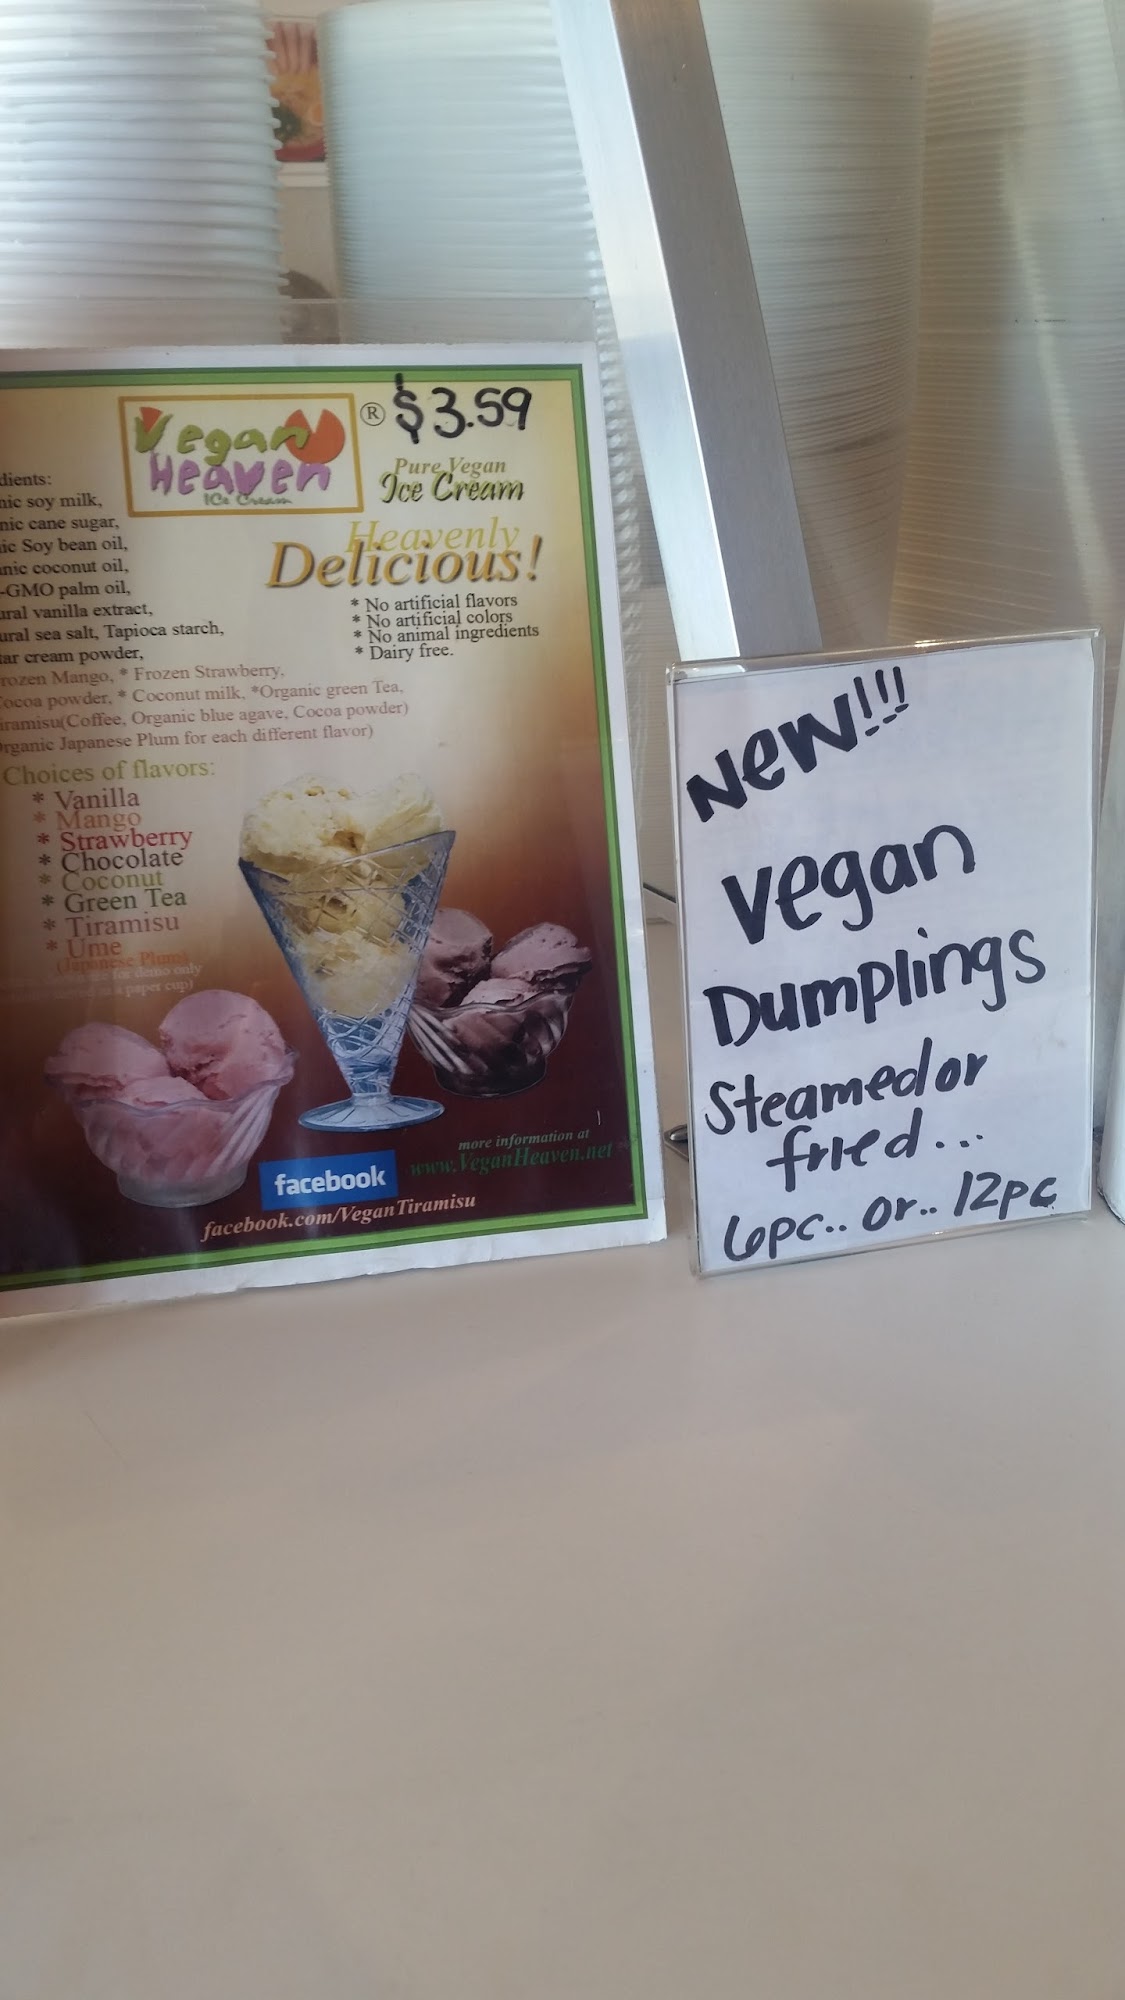 Vegan
Heaven
ICe Cream
® $3.59
Pure Vegan
Ice Cream
Heavenly
Delicious!
* No artificial flavors
* No artificial colors
* No animal ingredients
* Dairy free.
dients:
nic soy milk,
nic cane sugar,
ic Soy bean oil,
nic coconut oil,
-GMO palm oil,
ural vanilla extract,
ural sea salt, Tapioca starch,
tar cream powder,
rozen Mango, * Frozen Strawberry,
ocoa powder, * Coconut milk, *Organic green Tea,
iramisu(Coffee, Organic blue agave, Cocoa powder)
rganic Japanese Plum for each different flavor)
Choices of flavors:
* Vanilla
* Mango
* Strawberry
* Chocolate
* Coconut
* Green Tea
* Tiramisu
* Ume
(Japanese Plum)
for demo only
a paper cup)
more information at
www.VeganHeaven.net
facebook
facebook.com/VeganTiramisu
New!!!
Vegan
Dumplings
Steamed or
fried...
6pc.. or.. 12pc